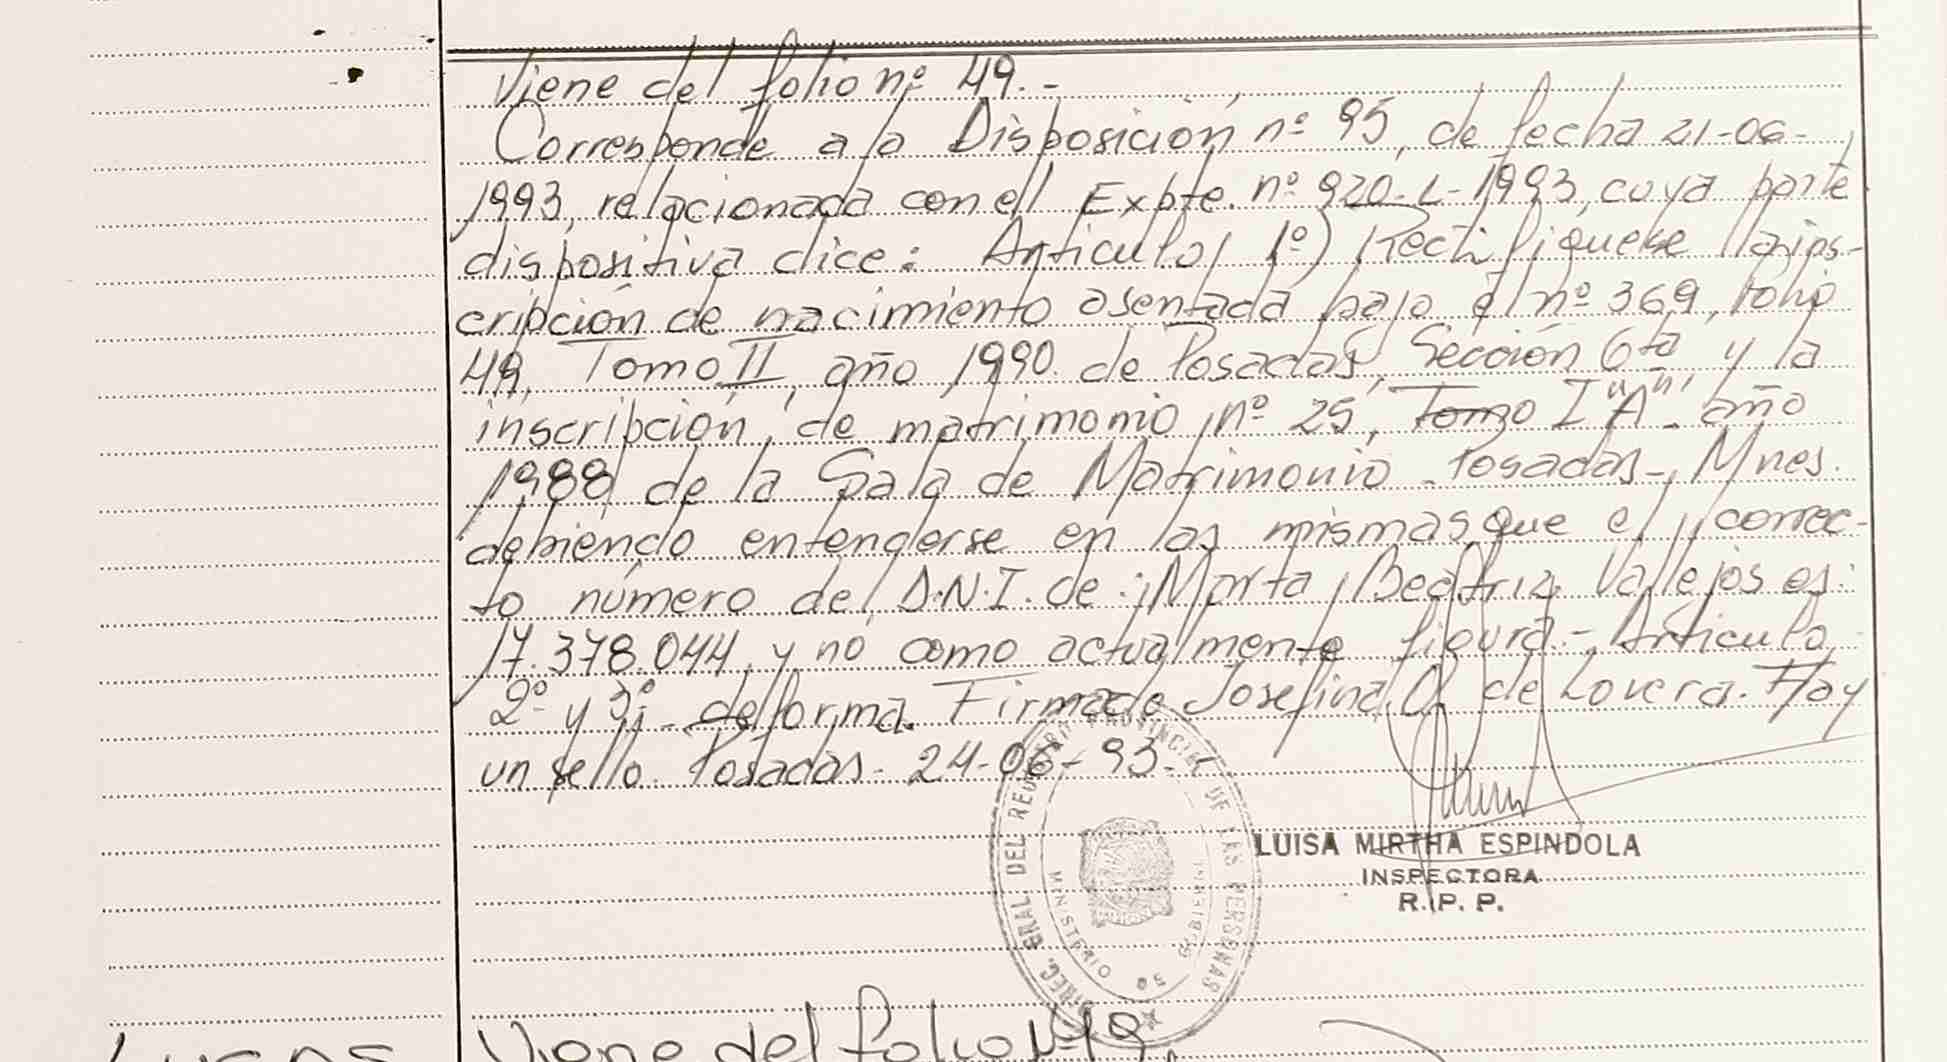 Viene del folio nº 49.-
Corresponde a la Disposición nº 95, de fecha 21-06-
1993, relacionada con el Expte. nº 920-L-1993, cuya parte
dispositiva dice: Articulo 1º) Rectifiquese la ins-
cripción de nacimiento asentada bajo el nº 369, folio
49, Tomo II, año 1990 de Posadas, Sección 6ta y la
inscripción de matrimonio nº 25, Tomo I "A" - año
1988 de la Sala de Matrimonio - Posadas - Mnes.
debiendo entenderse en las mismas que el correc-
to número del D.N.I. de: Marta Beatriz Vallejos es:
17.378.044, y no como actualmente figura.- Articulo
2º y 3º - de forma. Firmado Josefina O. de Lovera. Hay
un sello. Posadas - 24-06-93.-
DIREC. GRAL DEL REGISTRO PROVINCIAL DE LAS PERSONAS
MINISTERIO DE GOBIERNO
LUISA MIRTHA ESPINDOLA
INSPECTORA
R. P. P.
Lucas
Viene del folio 49.